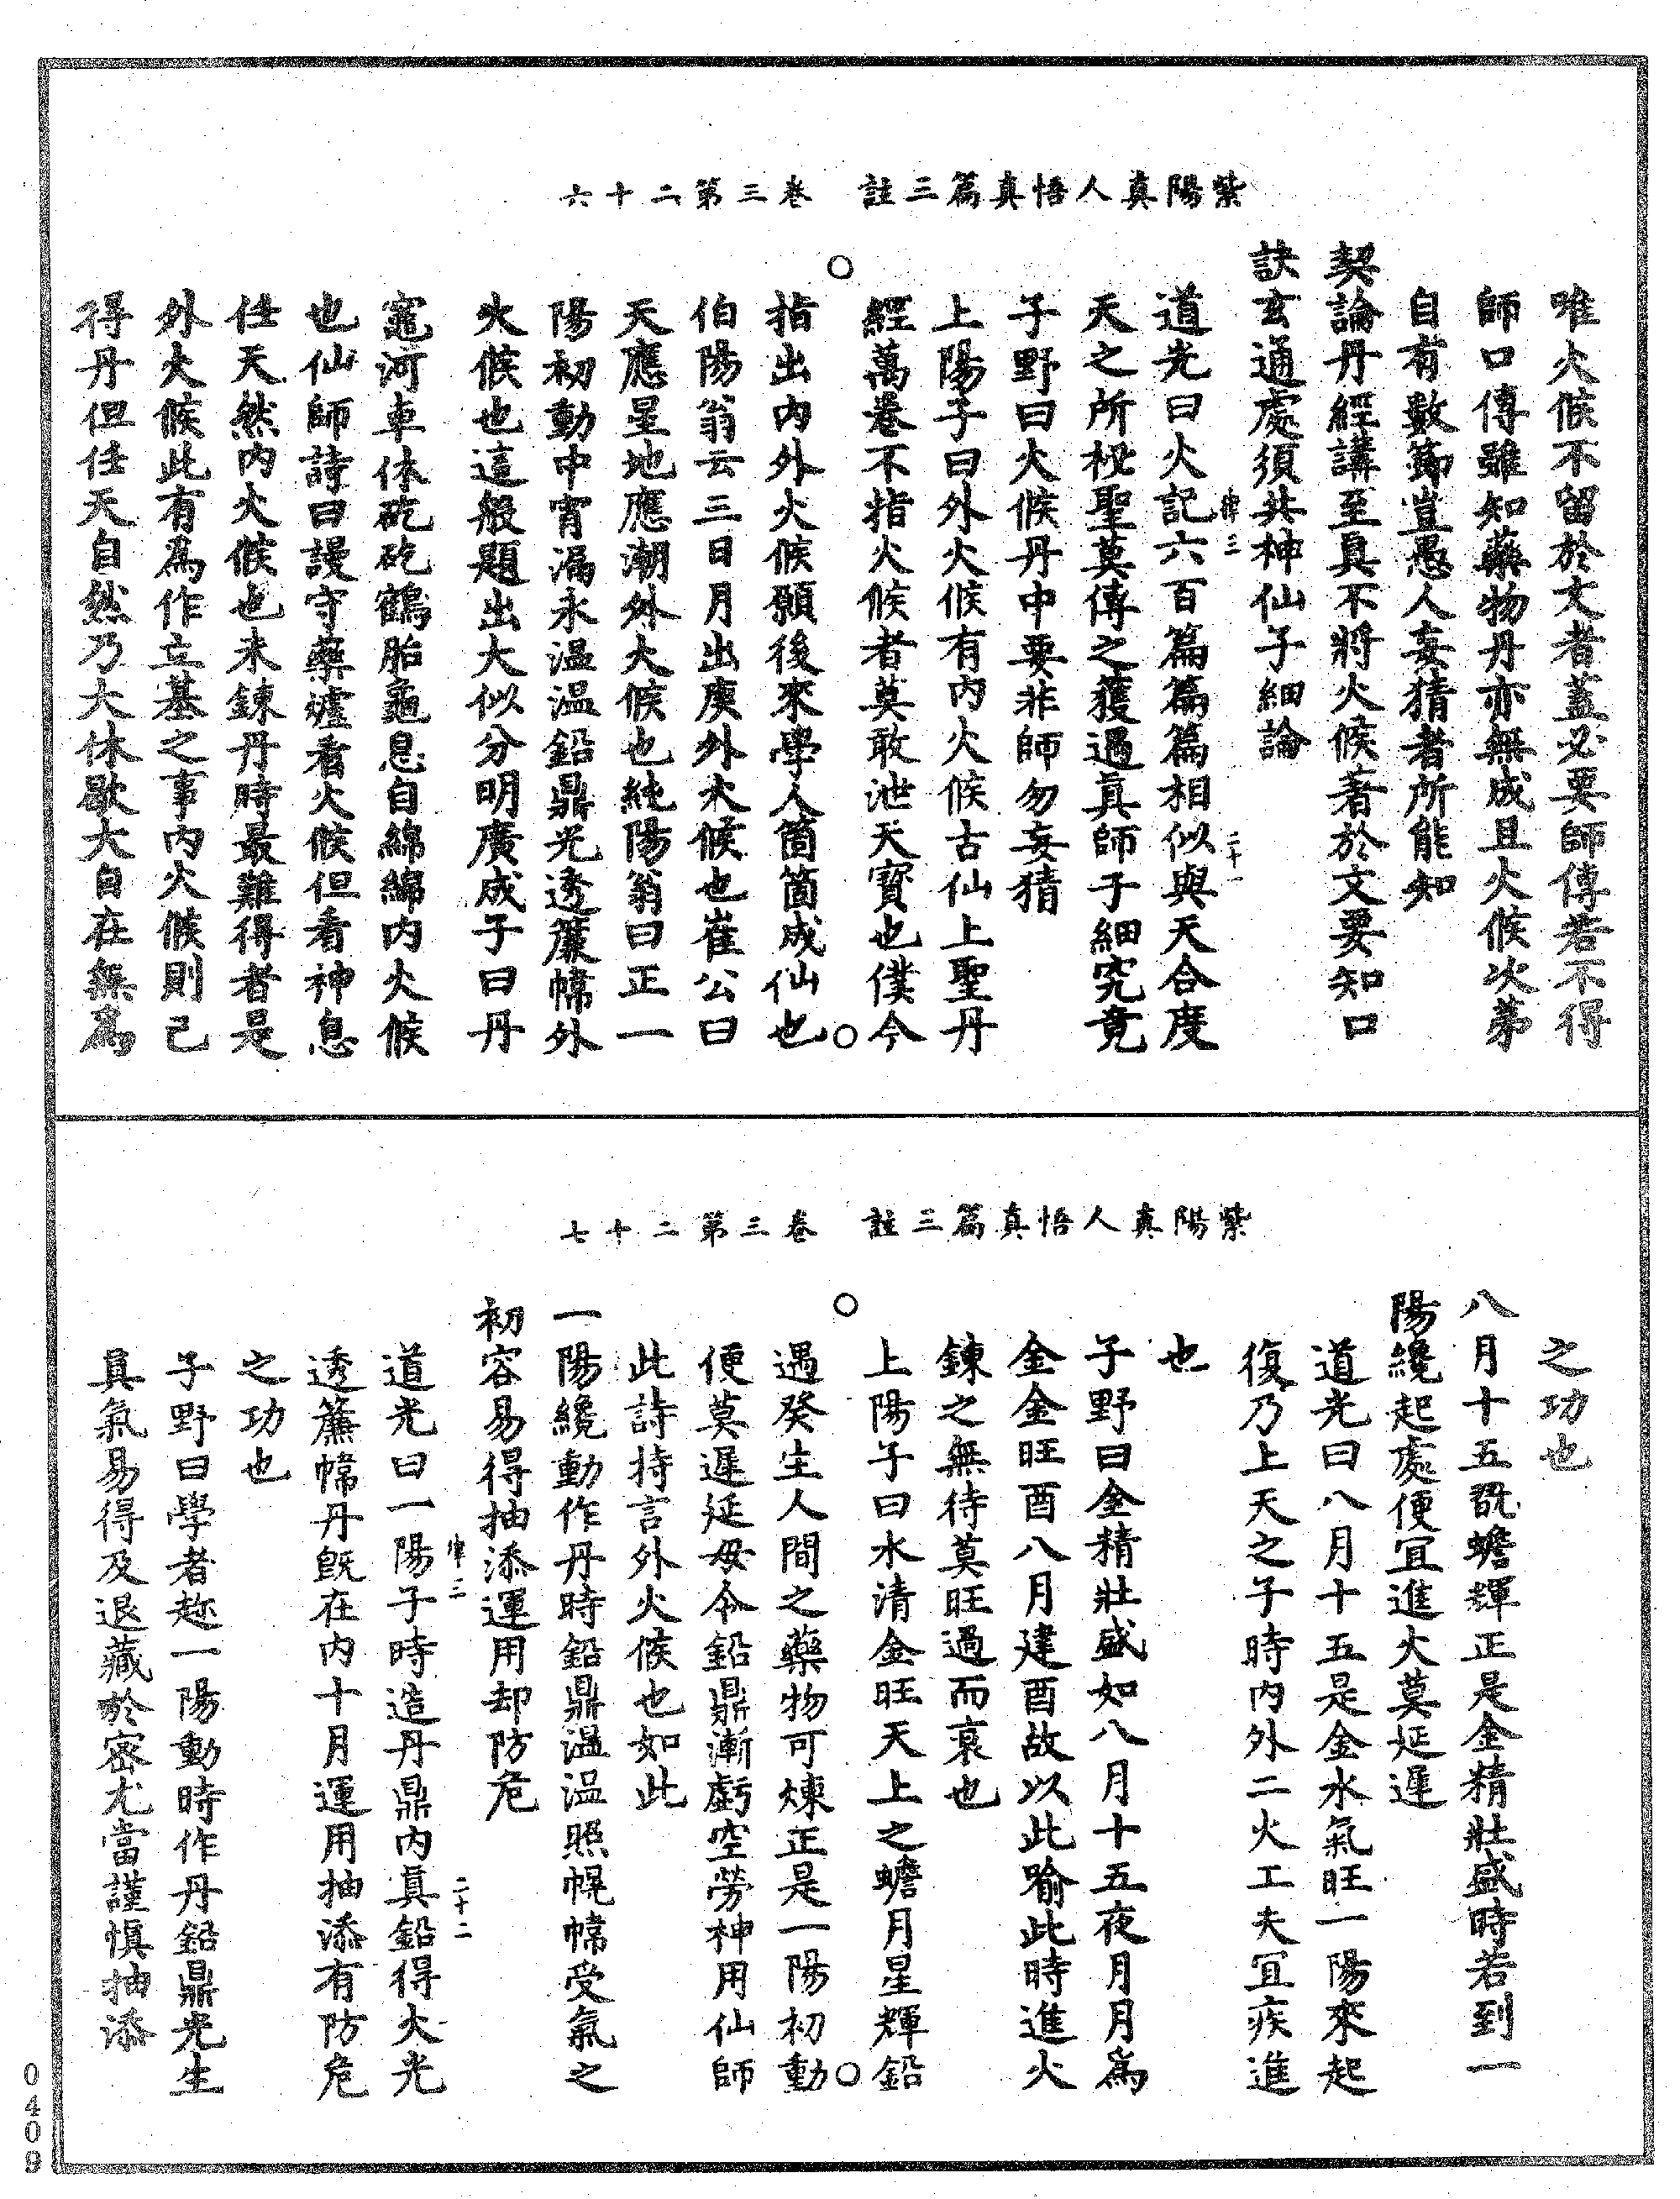 紫陽真人悟真篇三註　卷三第二十六
唯火候不留於文者蓋必要師傳若不得
師口傳雖知藥物丹亦無成且火候次第
自有數節豈愚人妄猜者所能知
契論丹經講至真不將火候著於文要知口
訣玄通處須共神仙子細論
道光曰火記六百篇篇篇相似與天合度
天之所秘聖莫傳之獲遇真師子細究竟
子野曰火候丹中要非師勿妄猜
上陽子曰外火候有內火候古仙上聖丹
經萬卷不指火候者莫敢泄天寶也僕今
指出內外火候願後來學人箇箇成仙也
伯陽翁云三日月出庚外火候也崔公曰
天應星地應潮外火候也純陽翁曰正一
陽初動中宵漏永溫溫鉛鼎光透簾幃外
火候也這般題出大似分明廣成子曰丹
竈河車休矻矻鶴胎龜息自綿綿內火候
也仙師詩曰謾守藥爐看火候但看神息
任天然內火候也未鍊丹時最難得者是
外火候此有為作立基之事內火候則已
得丹但任天自然乃大休歇大自在無為
三
二十一
紫陽真人悟真篇三註　卷三第二十七
之功也
八月十五翫蟾輝正是金精壯盛時若到一
陽纔起處便宜進火莫延遲
道光曰八月十五是金水氣旺一陽來起
復乃上天之子時內外二火工夫宜疾進
也
子野曰金精壯盛如八月十五夜月月為
金金旺酉八月建酉故以此喻此時進火
鍊之無待莫旺過而衰也
上陽子曰水清金旺天上之蟾月星輝鉛
遇癸生人間之藥物可煉正是一陽初動
便莫遲延毋令鉛鼎漸虧空勞神用仙師
此詩持言外火候也如此
一陽纔動作丹時鉛鼎溫溫照幌幃受氣之
初容易得抽添運用却防危
道光曰一陽子時造丹鼎內真鉛得火光
透簾幃丹既在內十月運用抽添有防危
之功也
子野曰學者趂一陽動時作丹鉛鼎光生
真氣易得及退藏於密尤當謹慎抽添
三
二十二
0409